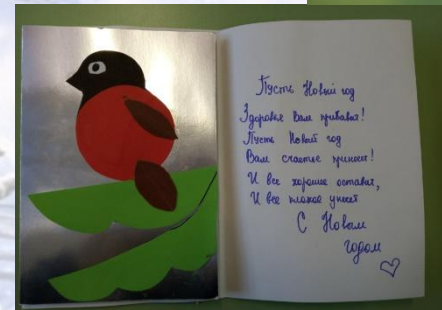 Пусть Новый год
Здоровье Вам прибавит!
Пусть Новый год
Вам счастье принесет!
И все хорошее оставит,
И все плохое унесет
С Новым
годом